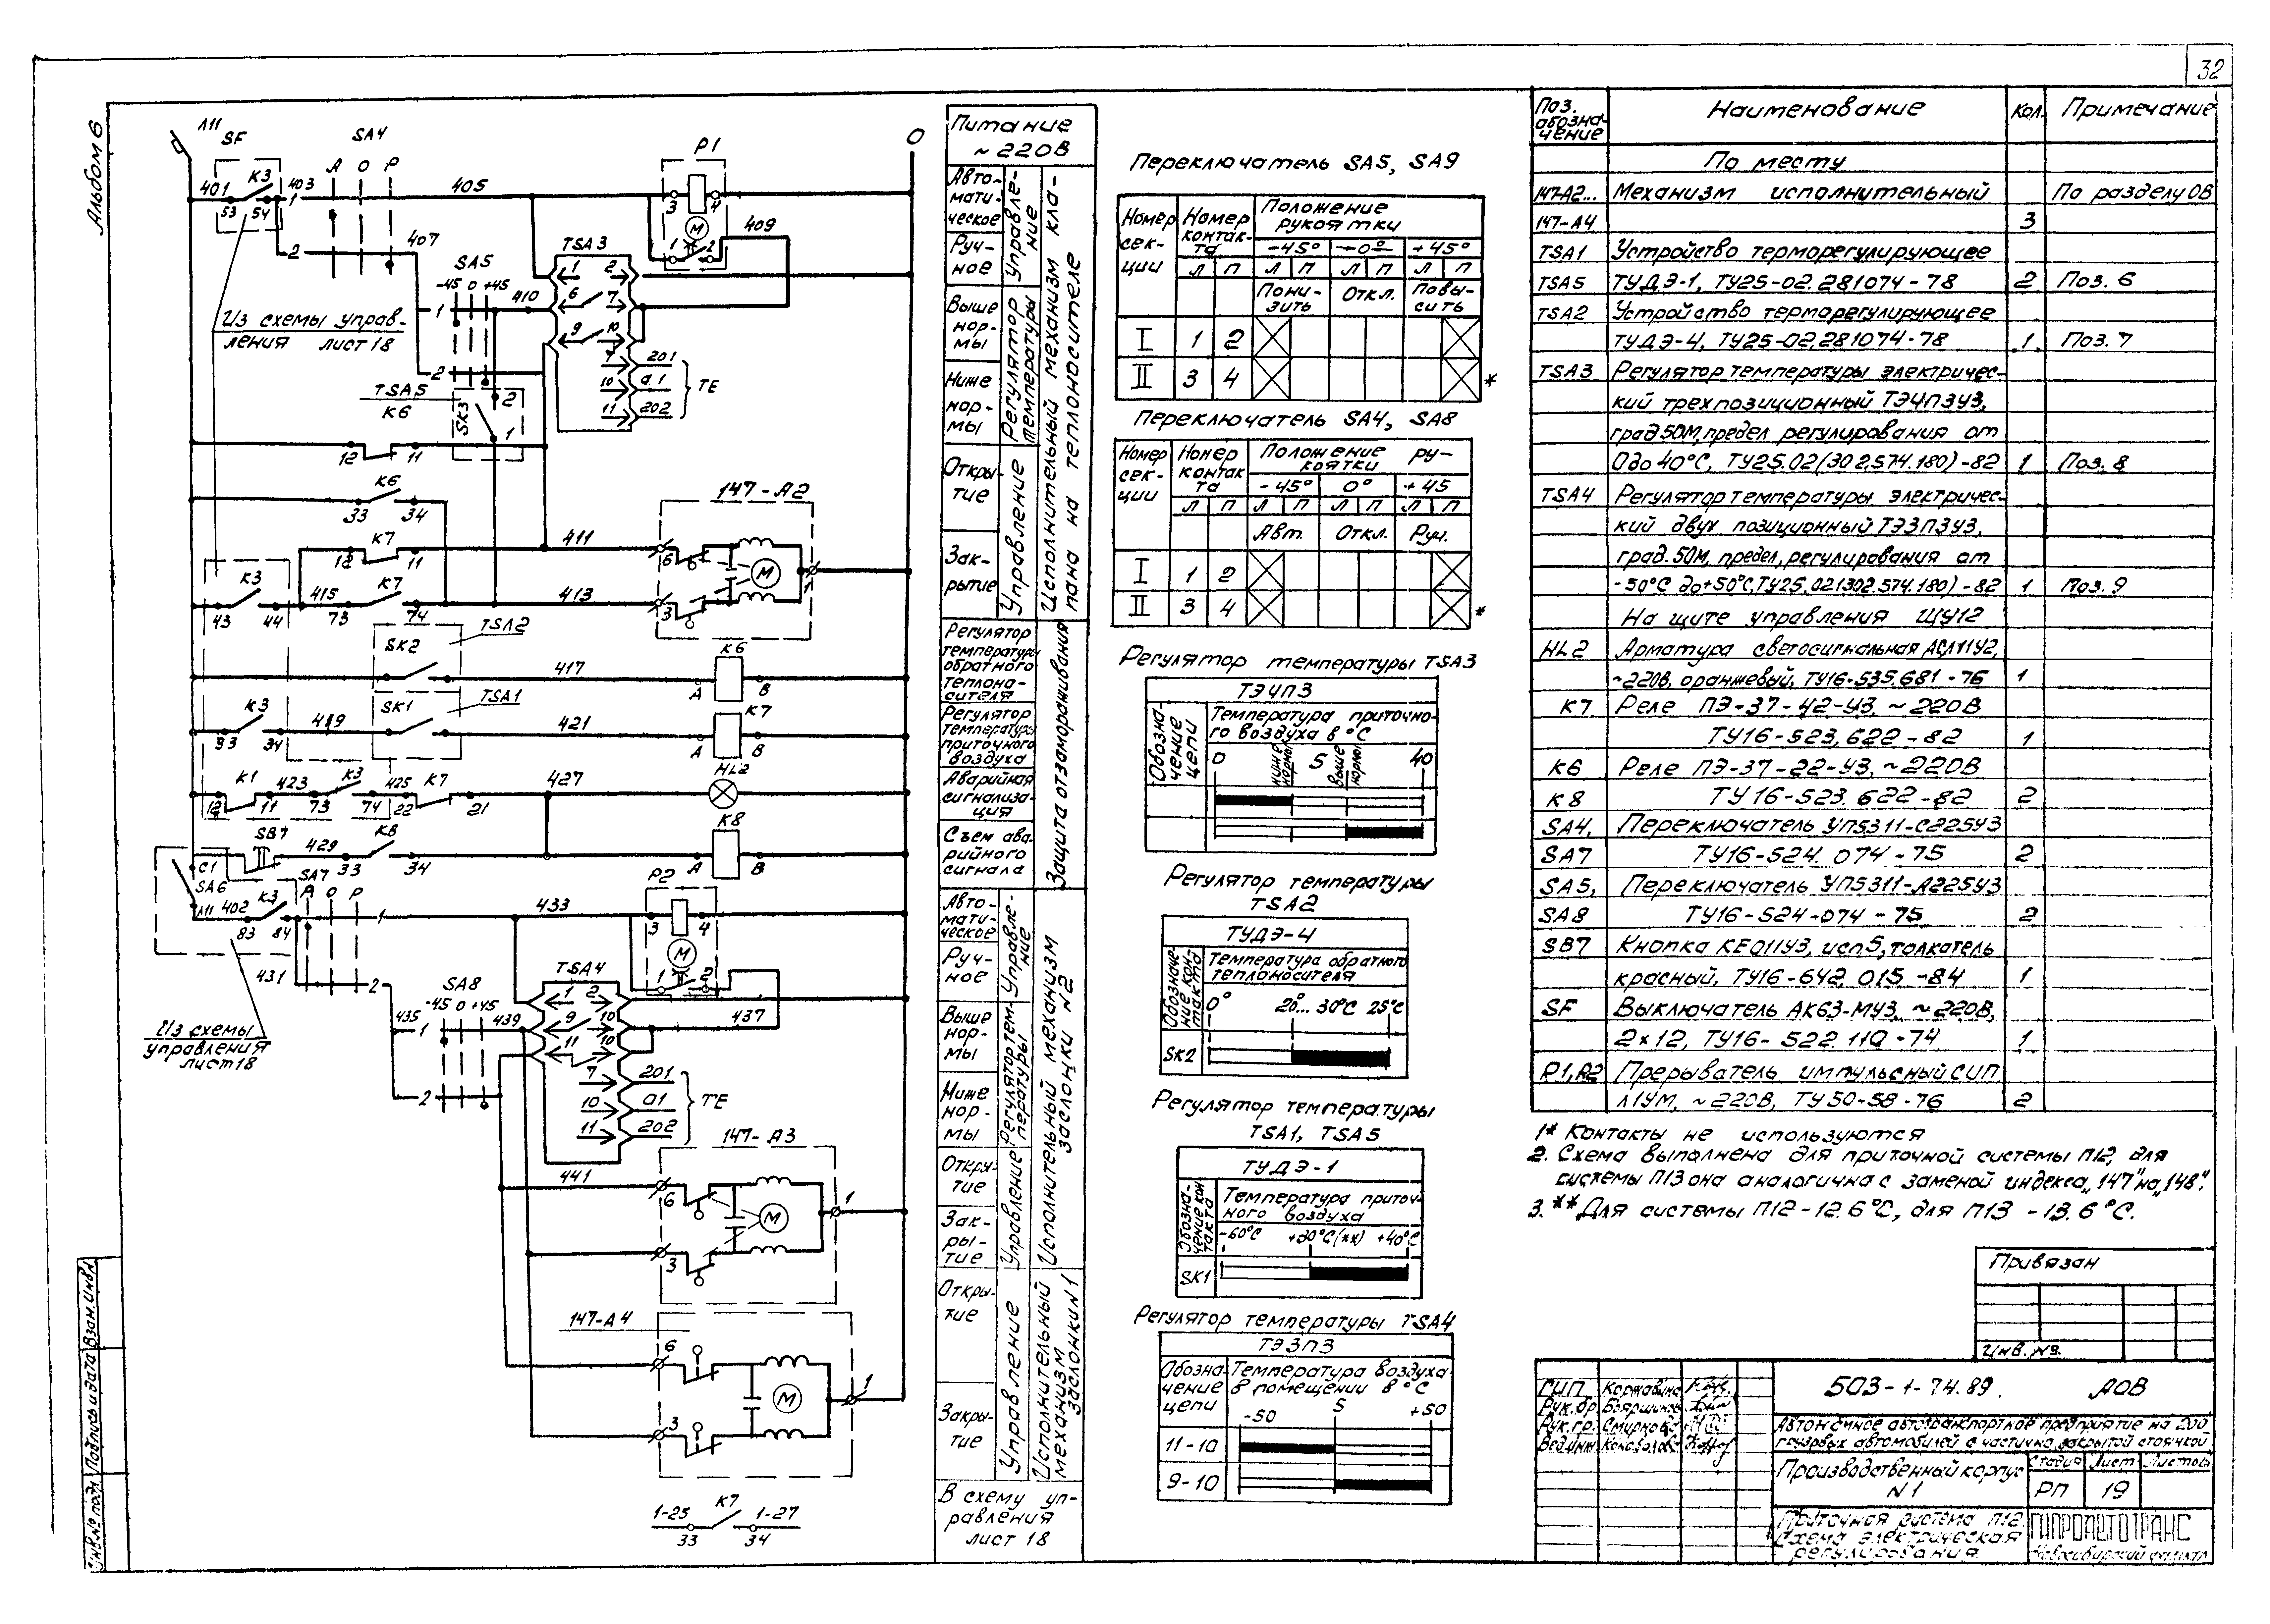 32
Альбом 6
А11
SF
SA4
А О Р
К3
401
53 54
403
1
405
2
407
Р1
3 4
М
1 2
409
О
TSA3
1 2
6 7
9 10
7 201
10 а1
11 202
ТЕ
SA5
-45 0 +45
1
410
2
Из схемы управ-
ления лист 18
TSA5
К6
SK3
2
1
12 11
К6
33 34
К7
12 11
411
147-А2
6
М
1
3
К3
43 44
415
К7
73 74
413
TSA2
SK2
417
К6
А В
TSA1
К3
33 34
419
SK1
421
К7
А В
К1
12 11
423
К3
73 74
425
К7
22 21
427
HL2
SB7
429
К8
33 34
К8
А В
С1
SA6
А11
402
К3
83 84
SA7
А О Р
1
433
431
2
Р2
3 4
М
1 2
437
TSA4
1 2
9 10
11 10
7 201
10 а1
11 202
ТЕ
SA8
-45 0 +45
435
1
439
2
Из схемы
управления
лист 18
147-А3
441
6
М
1
3
147-А4
6
М
1
3
1-25 К7 1-27
33 34
Питание
~220В
Авто-
мати-
ческое
Руч-
ное
Управле-
ние
Выше
нор-
мы
Ниже
нор-
мы
Регулятор
температуры
Откры-
тие
Зак-
рытие
Управление
Исполнительный механизм кла-
пана на теплоносителе
Регулятор
температуры
обратного
теплоно-
сителя
Регулятор
температуры
приточного
воздуха
Аварийная
сигнализа-
ция
Съем ава-
рийного
сигнала
Защита от замораживания
Авто-
мати-
ческое
Руч-
ное
Управле-
ние
Выше
нор-
мы
Ниже
нор-
мы
Регулятор тем-
пературы
Откры-
тие
Зак-
ры-
тие
Управление
Исполнительный механизм
заслонки N2
Откры-
тие
Закры-
тие
Управление
Исполнительный
механизм
заслонки N1
В схему уп-
равления
лист 18
Переключатель SA5, SA9
Номер
сек-
ции
Номер
контак-
та
Положение
рукоятки
-45° 0° +45°
Л П Л П Л П Л П
Пони-
зить
Откл.
Повы-
сить
I 1 2
II 3 4 *
Переключатель SA4, SA8
Номер
сек-
ции
Номер
контак
та
Положение ру-
коятки
-45° 0° +45
Л П Л П Л П Л П
Авт. Откл. Руч.
I 1 2
II 3 4 *
Регулятор температуры TSA3
ТЭ4П3
Обозна-
чение
цепи
Температура приточно-
го воздуха в °С
0 ниже нормы 5 выше нормы 40
Регулятор температуры
TSA2
ТУДЭ-4
Обозначе-
ние кон-
такта
Температура обратного
теплоносителя
0° 20°...30°С 25°С
SK2
Регулятор температуры
TSA1, TSA5
ТУДЭ-1
Обозна-
чение кон
такта
Температура приточ-
ного воздуха
-60°С +20°С(**) +40°С
SK1
Регулятор температуры TSA4
ТЭ3П3
Обозна-
чение
цепи
Температура воздуха
в помещении в °С
-50 5 +50
11-10
9-10
Поз.
обозна-
чение
Наименование
Кол.
Примечание
По месту
147-А2... Механизм исполнительный По разделу ОВ
147-А4 3
TSA1 Устройство терморегулирующее
TSA5 ТУДЭ-1, ТУ25-02.281074-78 2 Поз. 6
TSA2 Устройство терморегулирующее
ТУДЭ-4, ТУ25-02.281074-78 1 Поз. 7
TSA3 Регулятор температуры электричес-
кий трехпозиционный ТЭ4П3У3,
град 50М, предел регулирования от
0 до 40°С, ТУ25.02(302.574.180)-82 1 Поз. 8
TSA4 Регулятор температуры электричес-
кий двух позиционный ТЭ3П3У3,
град. 50М, предел, регулирования от
-50°С до+50°С, ТУ25.02(302.574.180)-82 1 Поз. 9
На щите управления ЩУ12
HL2 Арматура светосигнальная АСЛ11У2,
~220В, оранжевый, ТУ16-535.681-76 1
К7 Реле ПЭ-37-42-У3, ~220В
ТУ16-523.622-82 1
К6 Реле ПЭ-37-22-У3, ~220В
К8 ТУ16-523.622-82 2
SA4, Переключатель УП5311-С225У3
SA7 ТУ16-524.074-75 2
SA5, Переключатель УП5311-А225У3
SA8 ТУ16-524-074-75 2
SB7 Кнопка КЕ011У3, исп5, толкатель
красный, ТУ16-642.015-84 1
SF Выключатель АК63-МУ3, ~220В,
2×12, ТУ16-522.110-74 1
Р1, Р2 Прерыватель импульсный СИП
Л1УМ, ~220В, ТУ 50-58-76 2
1* Контакты не используются
2. Схема выполнена для приточной системы П12, для
системы П13 она аналогична с заменой индекса „147" на „148".
3.** Для системы П12-12.6°С, для П13 -13.6°С.
Привязан
Инв. №.
ГИП Коржавина
Рук.бр Бояршинов
Рук.гр. Смирнова
Вед.инж Коновалова
503-1-74.89. АОВ
Автономное автотранспортное предприятие на 200
грузовых автомобилей с частично закрытой стоянкой
Производственный корпус
N1
Стадия Лист Листов
РП 19
Приточная система П12.
Схема электрическая
регулирования.
ГИПРОАВТОТРАНС
Новосибирский филиал
Инв.№ подл. Подпись и дата Взам.инв.№